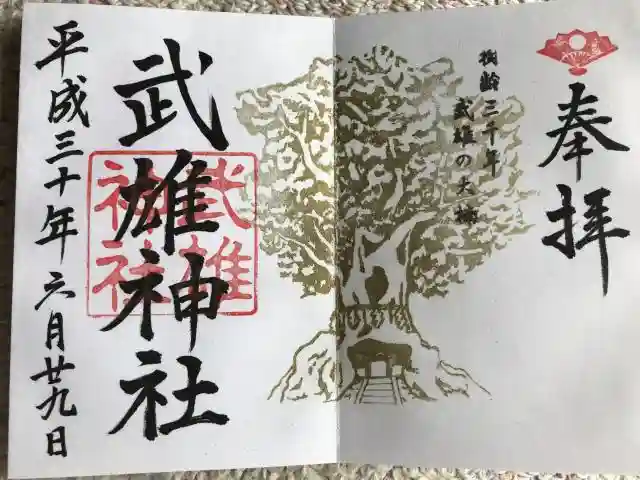 奉拝
樹齢三千年
武雄の大楠
武雄神社
武雄
神社
平成三十年六月廿九日